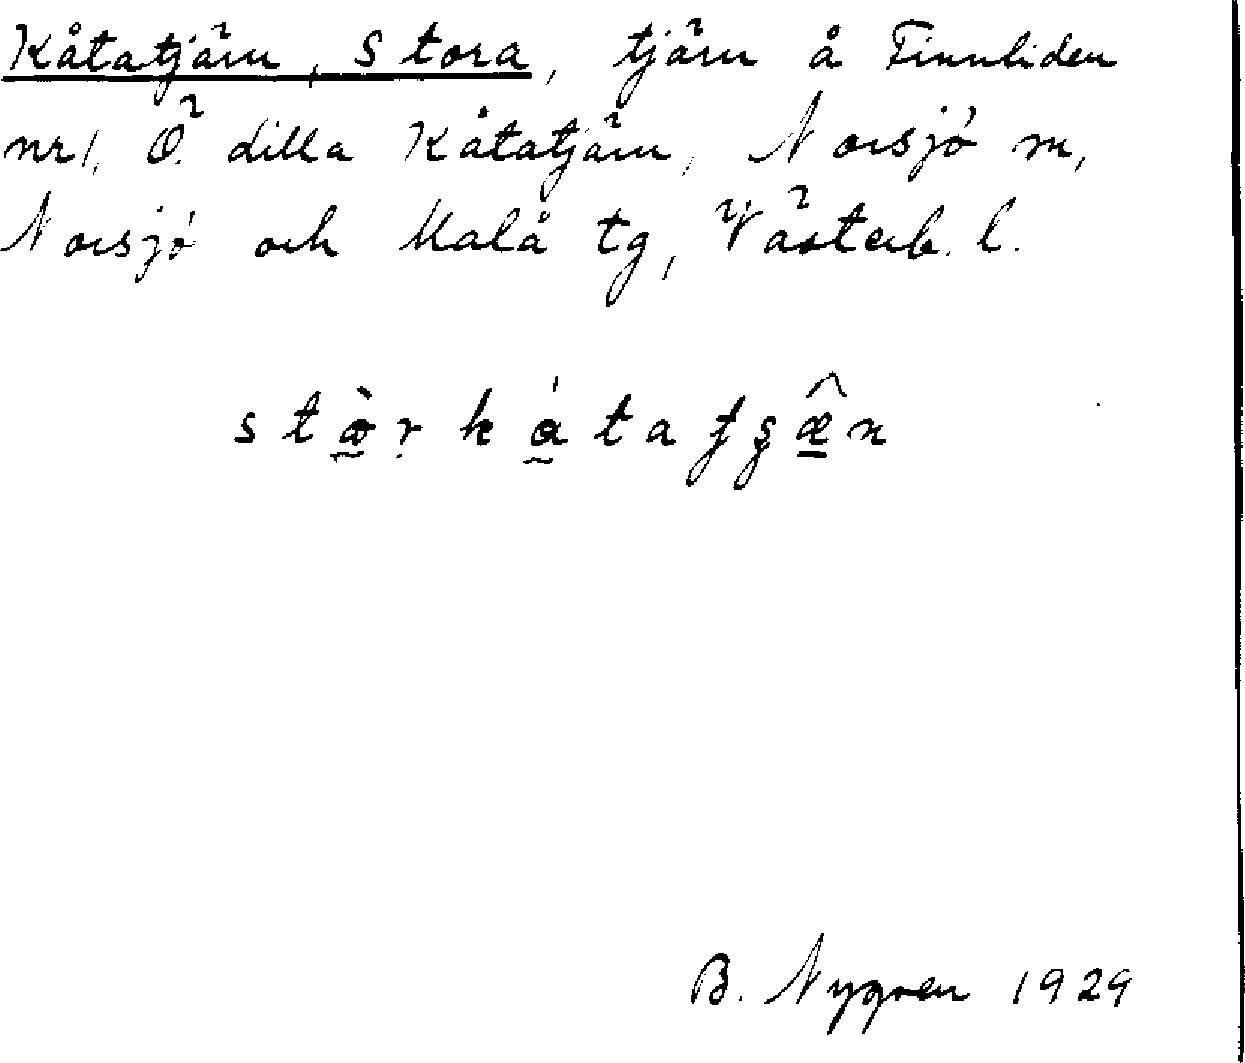 Kåtatjärn, Stora, tjärn å Finnliden
nr 1, Ö. Lilla Kåtatjärn, Norsjö sn,
Norsjö och Malå tg, Västerb. l.
B. Nygren 1929